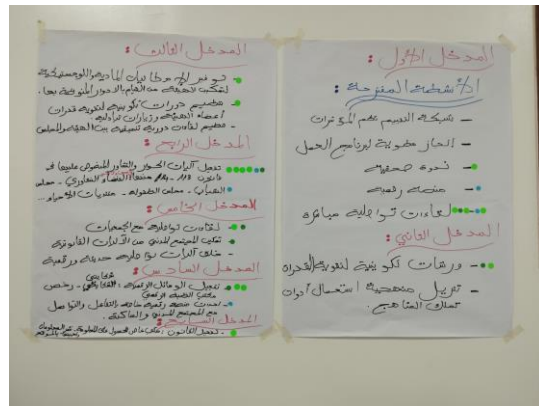 المدخل الأول :
الأنشطة المقترحة :
- شبكة التقييم بعلم المؤثرات
- انجاز مطوية لبرنامج العمل
- ندوة صحفية
- منصة رقمية
- لقاءات تواصلية مباشرة
المدخل الثاني :
- ورشات تكوينية لتقوية القدرات
- تنزيل منهجية استعمال أدوات
تملك المفاهيم.
المدخل الثالث :
- توفير الإمكانيات المادية واللوجستيكية
لتمكين الهيئة من القيام بالأدوار المنوطة بها.
- تنظيم دورات تكوينية لتقوية قدرات
أعضاء الهيئة وزيارات تبادلية.
- تنظيم لقاءات دورية تنسيقية بين الهيئة والمجلس
المدخل الرابع :
- تفعيل آليات الحوار والتشاور المنصوص عليها في
الشباب - مجلس الطفولة - منتديات الأحياء...
المدخل الخامس :
- لقاءات تواصلية مع الجمعيات
- تمكين المجتمع المدني من الأدوات القانونية
- خلق آليات تواصلية حديثة ورقمية
المدخل السادس :
- تفعيل الوسائل الرقمية
- احداث منصة رقمية خاصة بالتفاعل والتواصل
مع المجتمع المدني والساكنة.
المدخل السابع :
- تفعيل القانون